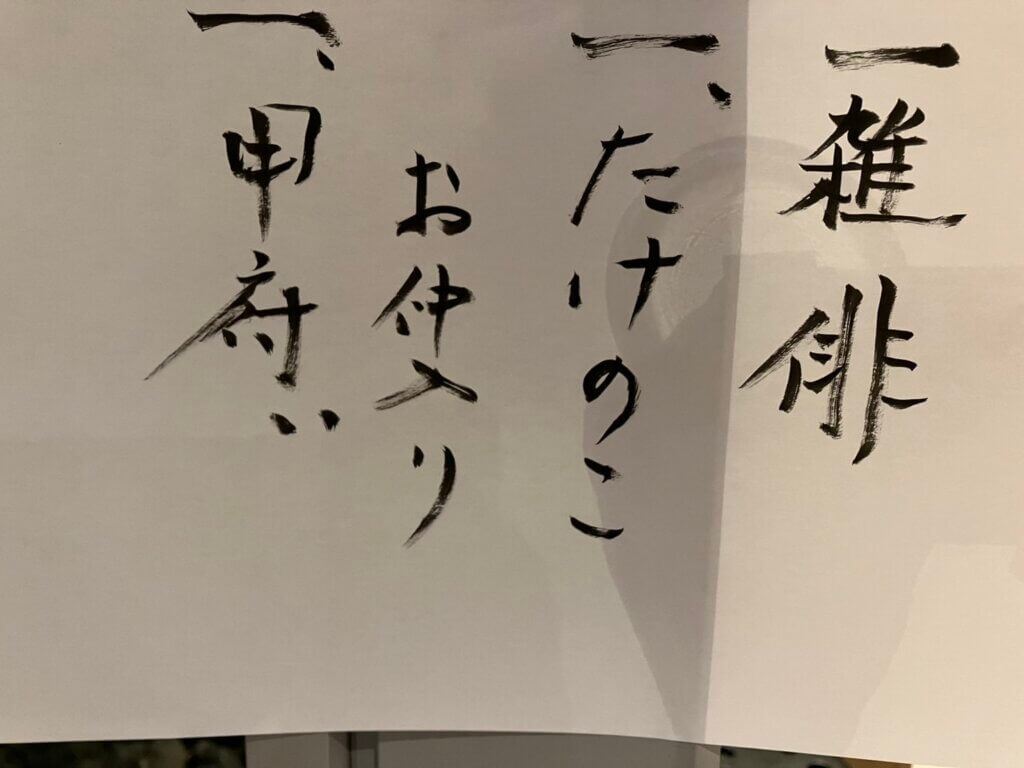 一雑俳
一、たけのこ
お仲入り
一、甲府い